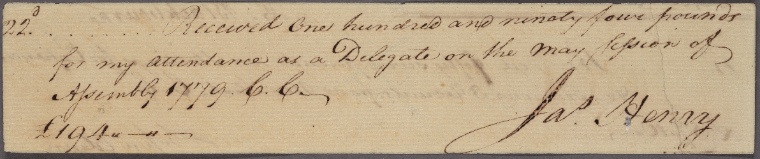 22d. . . . . . . . Received One hundred and ninety four pounds
for my attendance as a Delegate on the may Session of
Assembly 1779. C. C.
£194 " — " —
Jas. Henry